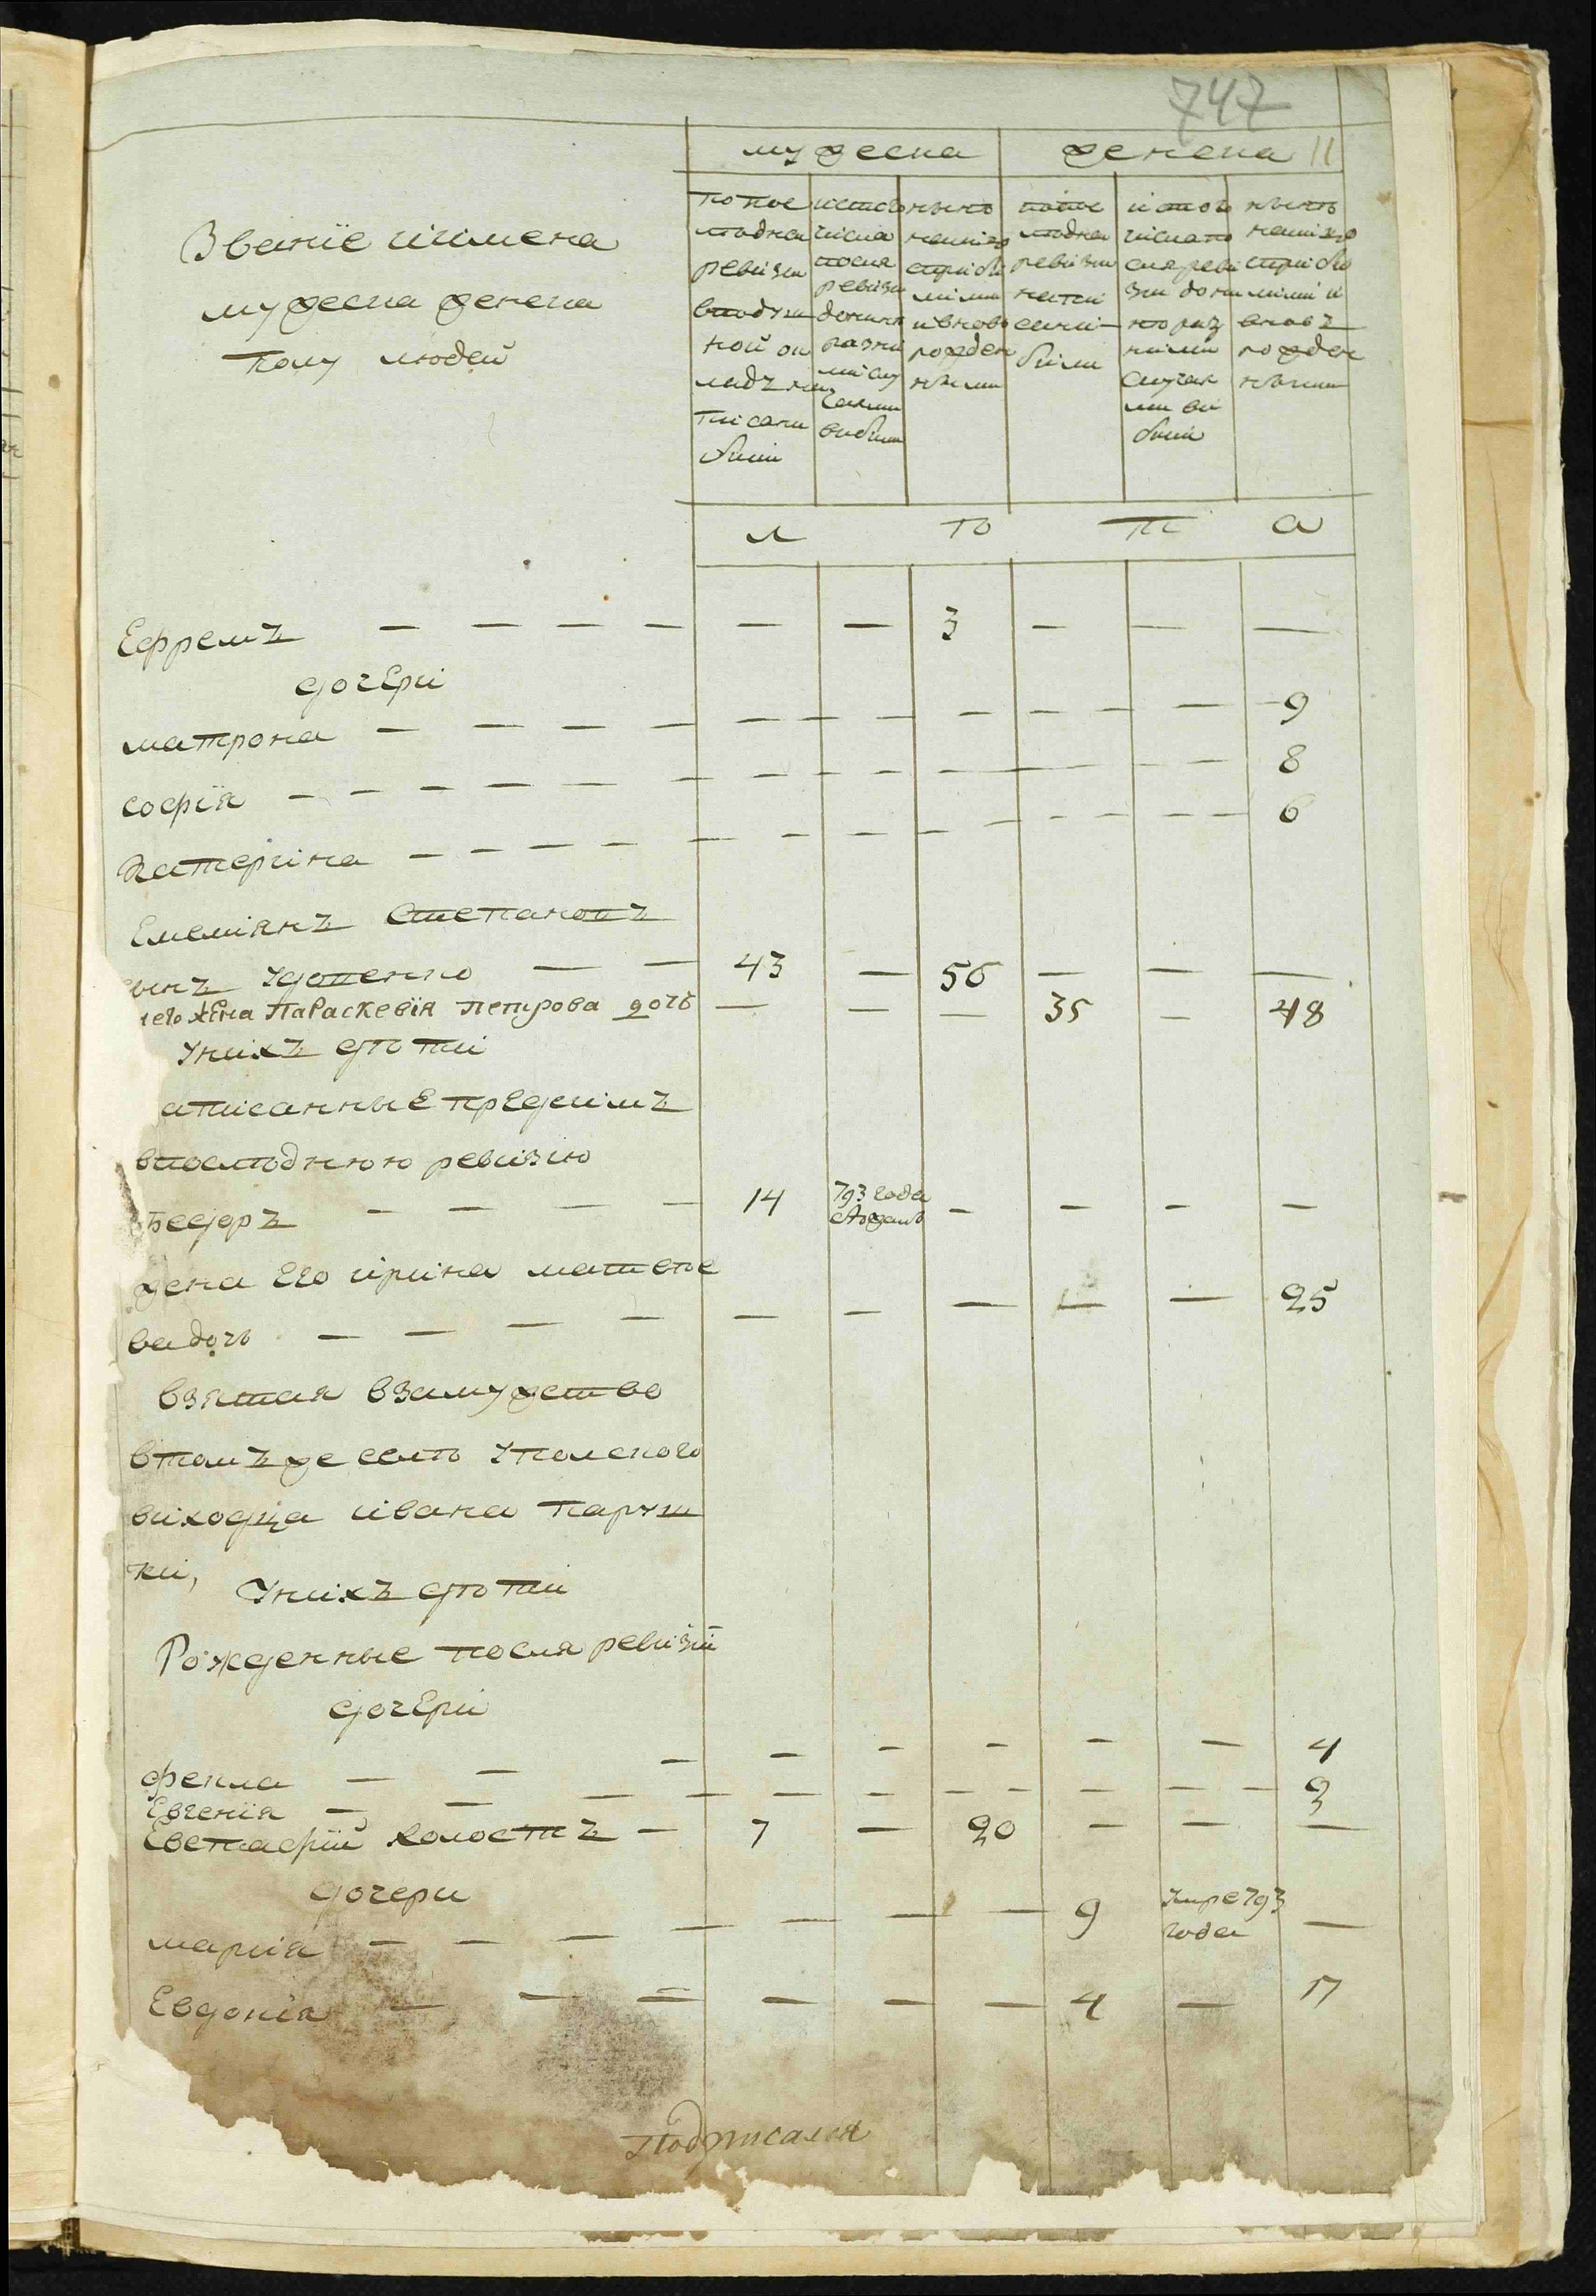 747
мужеска женска 11
Званіе иімена
мужеска женска
полу людей
попос
лѣдней
ревизіи
вподуш
ной ок
ладъ на
писани
били
истого
числа
посля
ревизіи
разни
ми слу
чаями
вибили
нынѣ
налицо
состри били
ми и
вновь
рожден
ными
попос
лѣдней
ревизіи
написани
били
истого
числа по
сля реви
зіи
по разъ
ними
случая
ми ви
били
нынѣ
налицо
вновь
рожден
ными
л ѣ т а
Ефремъ — — — — — — 3 — — —
дочери
матрона — — — — — — — — — 9
софія — — — — — — — — — 8
Катерина — — — — — — — — — 6
Емеліянъ Степановъ
сынъ Удовенко — — 43 — 56 — — —
его жена Параскевія Петрова дочь — — — 35 — 48
Унихъ дѣти
аписанные предсимъ
впослѣднюю ревизію
Ѳедоръ — — — — 14 793 года отданъ — — — —
жена его ирина матвѣе
ва дочь — — — — — — — — — 25
взятая взамужство
втомъ же селѣ Уполского
виходца ивана Паруш
ки,
Унихъ дѣти
Рожденные посля ревизіи
дочери
фекла — — — — — — — — 4
Евгенія — — — — — — — — — 2
Евстафій холостъ — 7 — 20 — — —
дочери
марія — — — — — — — 9 Умре 793 года —
Евдокія — — — — — — 4 — 17
Подписалъ